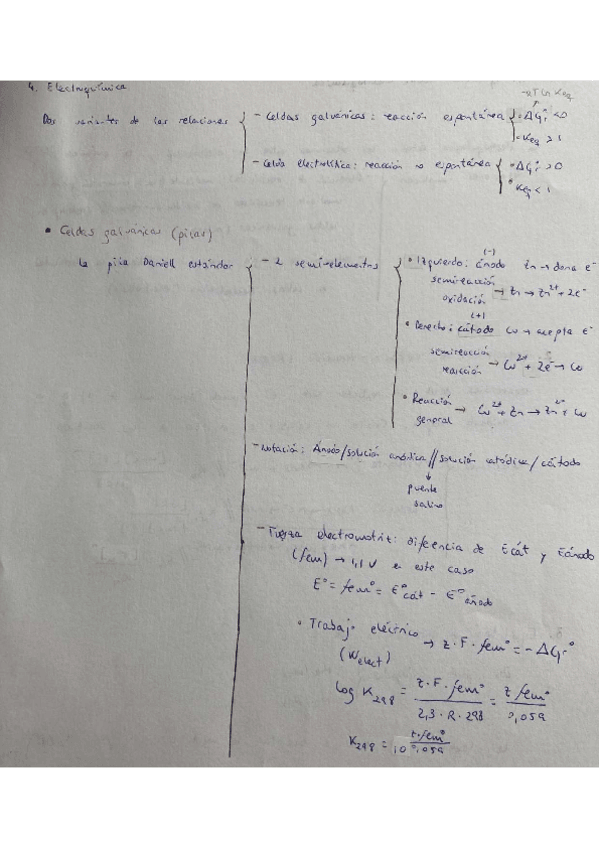 4. Electroquímica
-RT Ln Keq
Dos variantes de las relaciones
- Celdas galvánicas: reacción espontánea
• ΔGr° < 0
• Keq > 1
- Celda electrolítica: reacción no espontánea
• ΔGr° > 0
• Keq < 1
• Celdas galvánicas (pilas)
La pila Daniell estándar
- 2 semielementos
(-)
• Izquierdo: ánodo Zn → dona e⁻
semireacción oxidación → Zn → Zn²⁺ + 2e⁻
(+)
• Derecho: cátodo Cu → acepta e⁻
semireacción → Cu²⁺ + 2e⁻ → Cu
• Reacción general → Cu²⁺ + Zn → Zn²⁺ + Cu
- Notación: Ánodo/solución anódica//solución catódica/cátodo
↓
puente
salino
- Fuerza electromotriz: diferencia de Ecát y Eánodo
(fem) → 1,1 V en este caso
E° = fem° = E°cát - E°ánodo
• Trabajo eléctrico → z · F · fem° = -ΔGr°
(Welect)
log K298 = z·F·fem° / 2,3 · R · 298 = z fem° / 0,059
K298 = 10^(z·fem°/0,059)